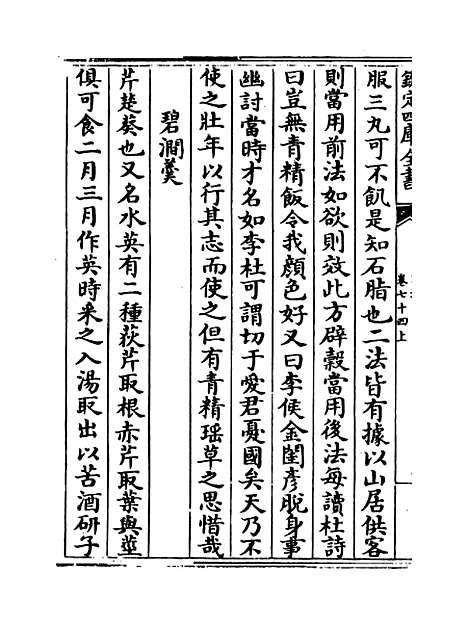 欽定四庫全書
卷七十四上
服三丸可不飢是知石脂也二法皆有據以山居供客
則當用前法如欲則效此方辟糓當用後法每讀杜詩
曰豈無青精飯令我顔色好又曰李侯金閨彦脱身事
幽討當時才名如李杜可謂切于愛君憂國矣天乃不
使之壯年以行其志而使之但有青精瑶草之思惜哉
碧澗羮
芹楚葵也又名水英有二種荻芹取根赤芹取葉與莖
俱可食二月三月作英時采之入湯取出以苦酒研子